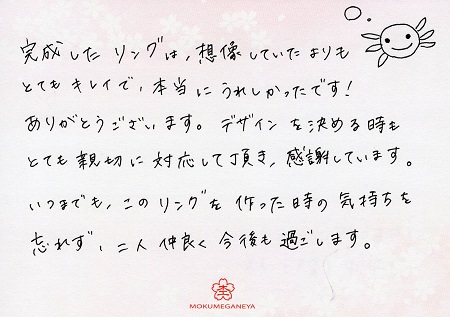 完成した リングは、想像していたよりも
とても キレイで、本当に うれしかったです!
ありがとうございます。 デザイン を決める時も
とても 親切に 対応して頂き、感謝しています。
いつまでも、この リングを 作った時の 気持ちを
忘れず、二人 仲良く 今後も 過ごします。
MOKUMEGANEYA